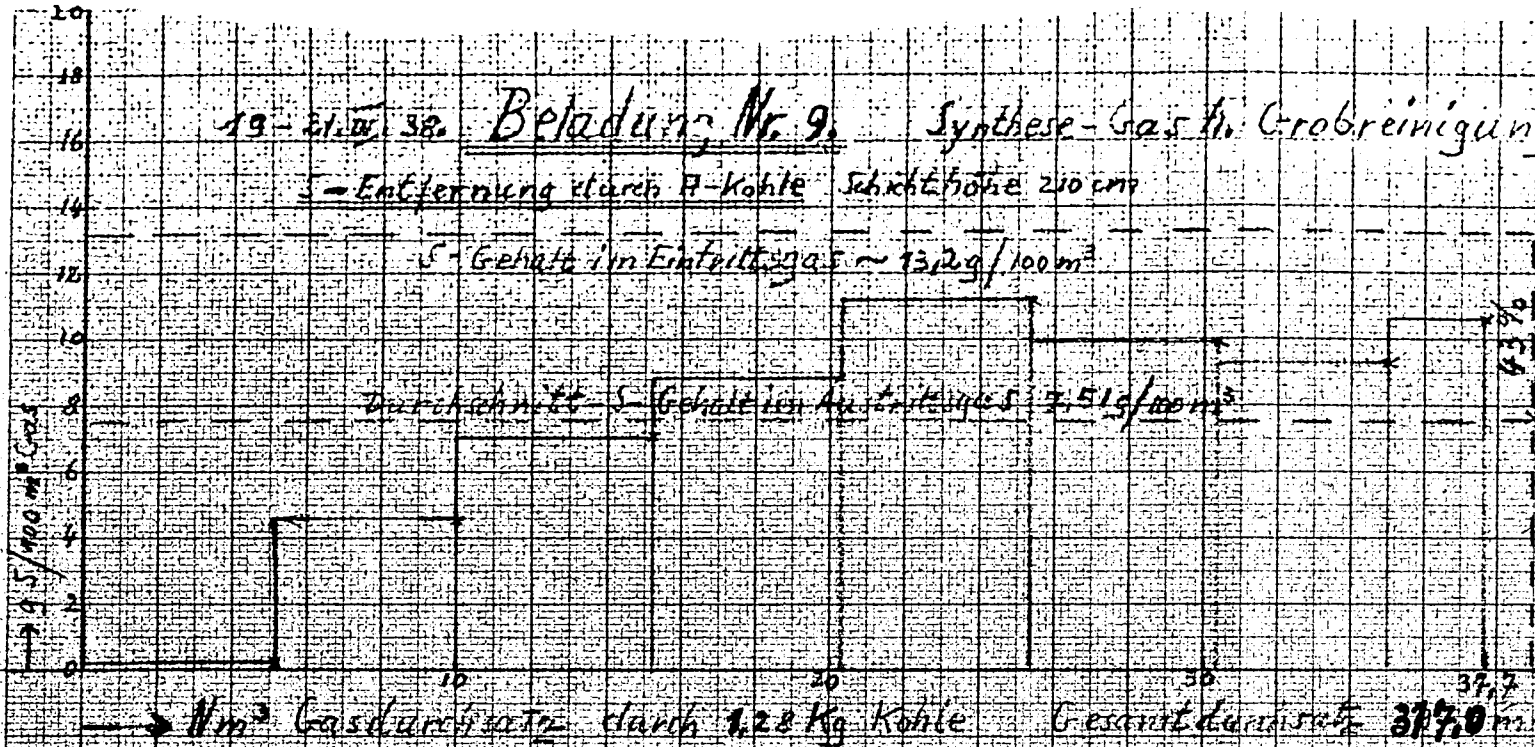 20
18
19-21.IV.38. Beladung Nr. 9. Synthese-Gas n. Grobreinigun
16
S-Entfernung durch A-Kohle Schichthöhe 210 cm
14
S-Gehalt im Eintrittsgas ~ 13,2g/100m³
12
10
43%
Durchschnitt-S-Gehalt im Austrittsgas 7,51g/100m³
8
6
4
2
0
→ g S/100 m³ Gas
10 20 30 37,7
→ Nm³ Gasdurchsatz durch 1,28 Kg Kohle Gesamtdurchsatz m